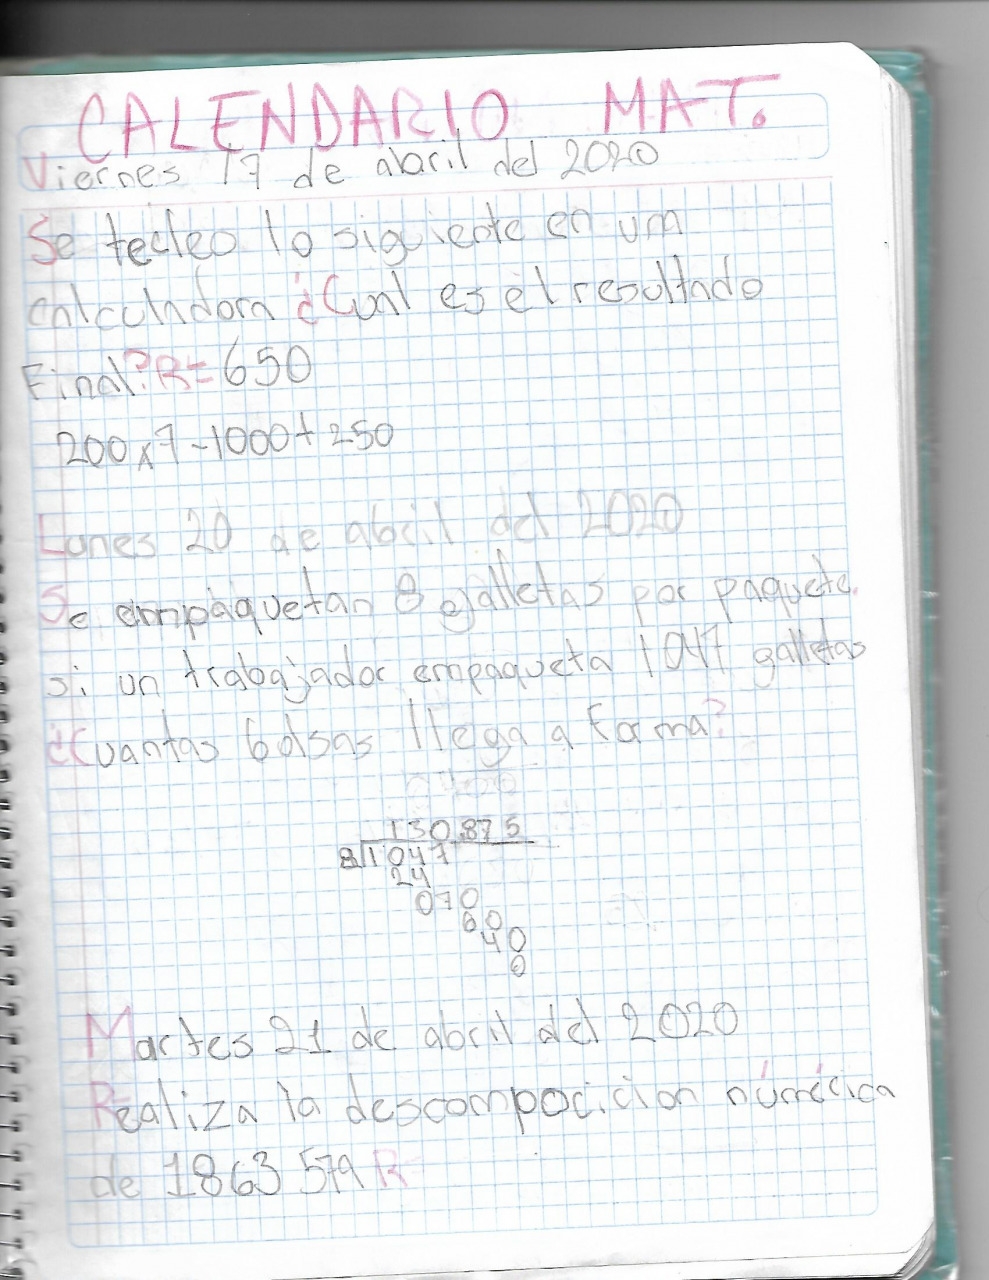 CALENDARIO MAT.
Viernes 17 de abril del 2020
Se tecleo lo siguiente en um
calculadora ¿Cual es el resultado
Final? R= 650
200x7-1000+250
Lunes 20 de abril del 2020
Se empaquetan 8 galletas por paquete.
si un trabajador empaqueta 1047 galletas
¿Cuantas bolsas llega a forma?
130.875
8 1047
24
070
60
40
0
Martes 21 de abril del 2020
Realiza la descompocicion númérica
de 1863 579 R